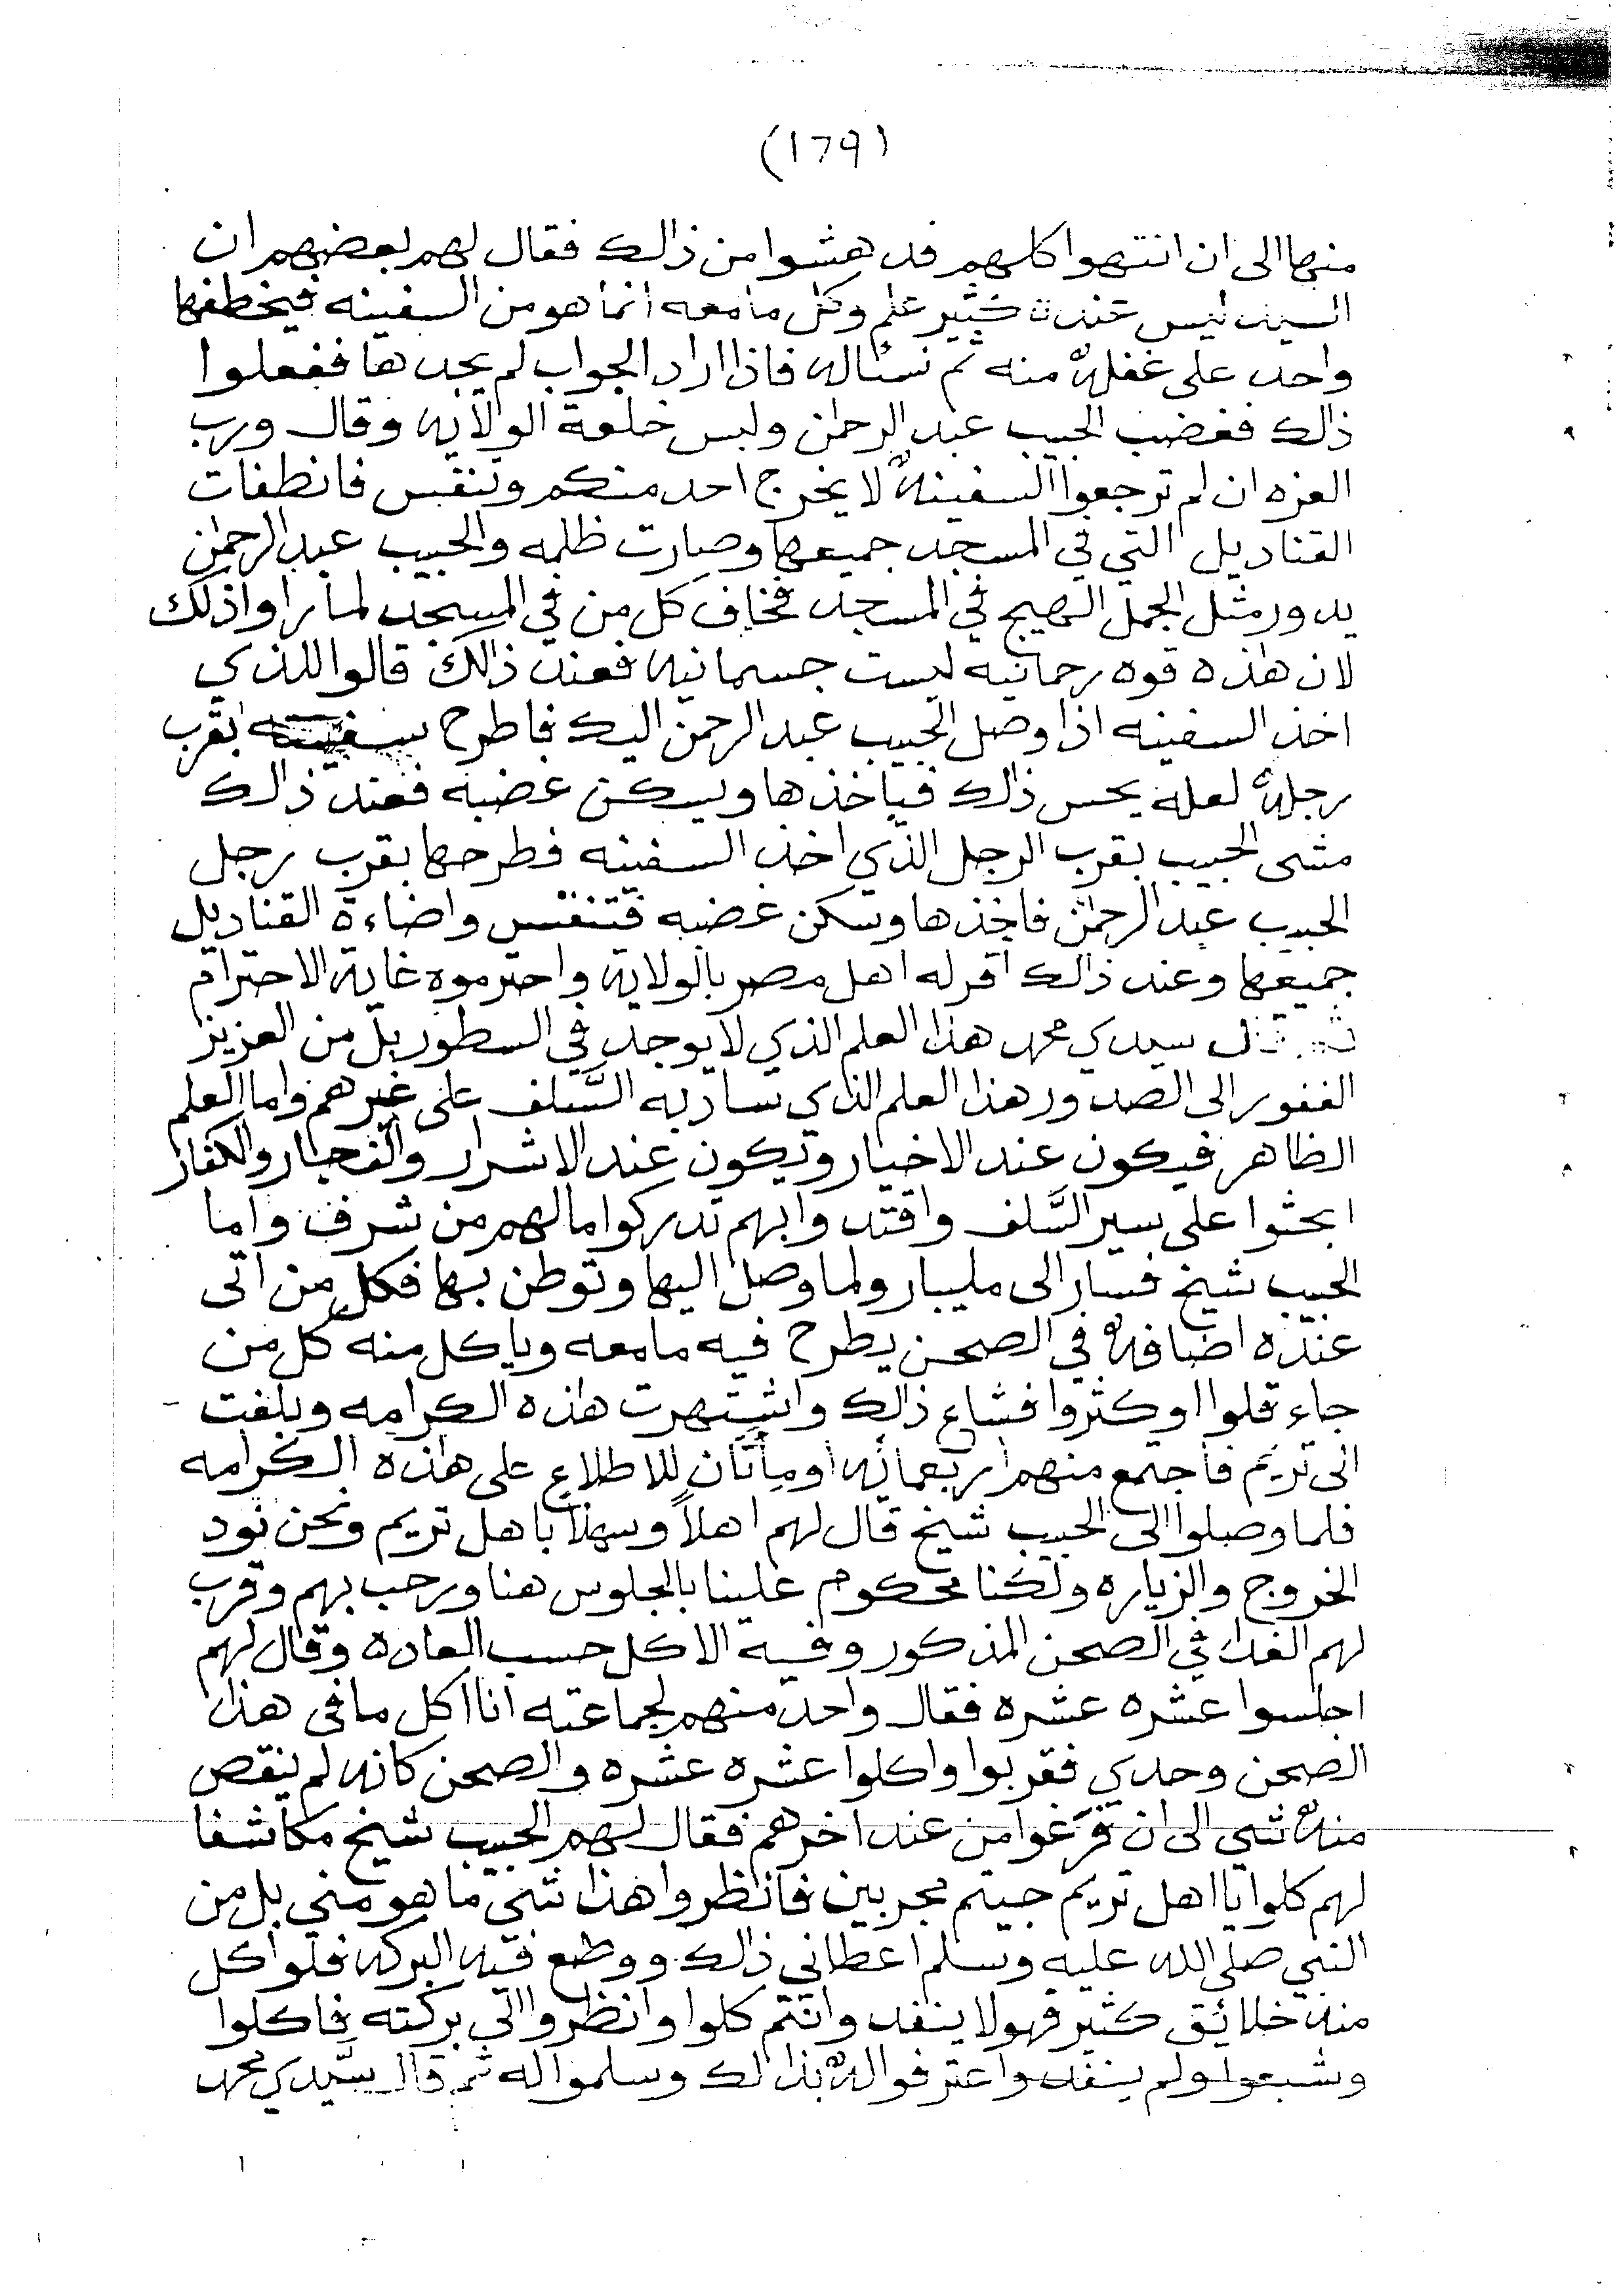 (179)
منها الى ان انتهوا كلهم فدهشوا من ذالك فقال لهم بعضهم ان
السيد ليس عنده كثير علم وكل ما معه انما هو من السفينه فيخطفها
واحد على غفلة منه ثم نسئاله فاذا اراد الجواب لم يجدها ففعلوا
ذالك فغضب الحبيب عبد الرحمٰن ولبس خلعة الولايه وقال ورب
العزه ان لم ترجعوا السفينة لا يخرج احد منكم وتنفس فانطفات
القناديل التي في المسجد جميعها وصارت ظلمه والحبيب عبد الرحمٰن
يدور مثل الجمل الهيج في المسجد فخاف كل من في المسجد لما راوا ذلك
لان هٰذه قوه رحمانيه ليست جسمانيه فعند ذالك قالوا للذي
اخذ السفينه اذا وصل الحبيب عبد الرحمن اليك فاطرح سفينته بقرب
رجله لعله يحس ذالك فياخذها ويسكن غضبه فعند ذالك
مشى الحبيب بقرب الرجل الذي اخذ السفينه فطرحها بقرب رجل
الحبيب عبد الرحمٰن فاخذها وسكن غضبه فتنفس واضاءة القناديل
جميعها وعند ذالك اقر له اهل مصر بالولاية واحترموه غاية الاحترام
سيدي محمد هذا العلم الذي لا يوجد في السطور بل من العزيز
الغفور الى الصدور هذا العلم الذي ساد به السَّلف على غيرهم واما العلم
الظاهر فيكون عند الاخيار ويكون عند الاشرار والفجار والكفار
ابحثوا على سير السَّلف واقتدوا بهم تدركوا ما لهم من شرف واما
الحبيب شيخ فسار الى مليبار ولما وصل اليها وتوطن بها فكل من اتى
عنده اضافه في الصحن يطرح فيه ما معه وياكل منه كل من
جاء قلوا او كثروا فشاع ذالك واشتهرت هٰذه الكرامه وبلغت
الى تريم فاجتمع منهم اربعمائه او مائتان للاطلاع على هٰذه الكرامه
فلما وصلوا الى الحبيب شيخ قال لهم اهلاً وسهلاً باهل تريم ونحن نود
الخروج والزياره ولكنا محكوم علينا بالجلوس هنا ورحب بهم وقرب
لهم الغداء في الصحن المذكور وفيه الاكل حسب العاده وقال لهم
اجلسوا عشره عشره فقال واحد منهم لجماعته انا اكل ما في هذا
الصحن وحدي فقربوا واكلوا عشره عشره والصحن كانه لم ينقص
منه شي الى ان فرغوا من عند اخرهم فقال لهم الحبيب شيخ مكاشفا
لهم كلوا يا اهل تريم جيتم مجربين فانظروا هذا شي ما هو مني بل من
النبي صلى الله عليه وسلم اعطاني ذالك ووضع فيه البركه فلو اكل
منه خلائق كثير فهو لا ينفد وانتم كلوا وانظروا الى بركته فاكلوا
وشبعوا ولم ينفد واعترفوا له بذالك وسلموا له ثم قال سيّدي محمد